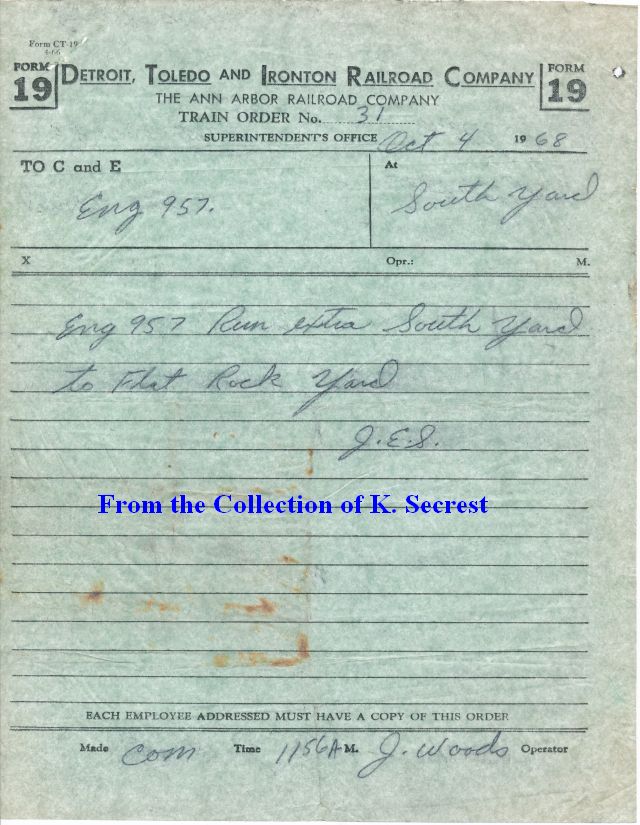 Form CT-19
4-66
FORM 19 DETROIT, TOLEDO AND IRONTON RAILROAD COMPANY FORM 19
THE ANN ARBOR RAILROAD COMPANY
TRAIN ORDER No. 31
SUPERINTENDENT'S OFFICE Oct 4 1968
TO C and E At
Eng 957. South Yard
X Opr.: M.
Eng 957 Run extra South Yard
to Flat Rock Yard
J.E.S.
From the Collection of K. Secrest
EACH EMPLOYEE ADDRESSED MUST HAVE A COPY OF THIS ORDER
Made Com Time 1156A M. J. Woods Operator